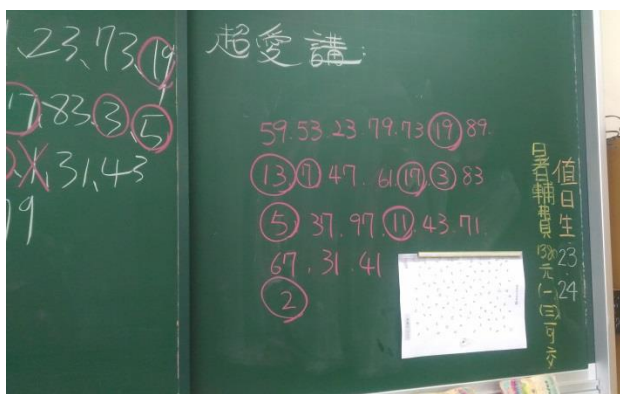 、23、73、19
17、83、3、5
X、31、43
79
超愛講:
59.53.23.79.73 19 89.
13 7 47. 61 17 3 83
5 37.97. 11. 43.71.
67.31.41
2
值日生 23 24
暑輔費 1380元(一)(三)可交